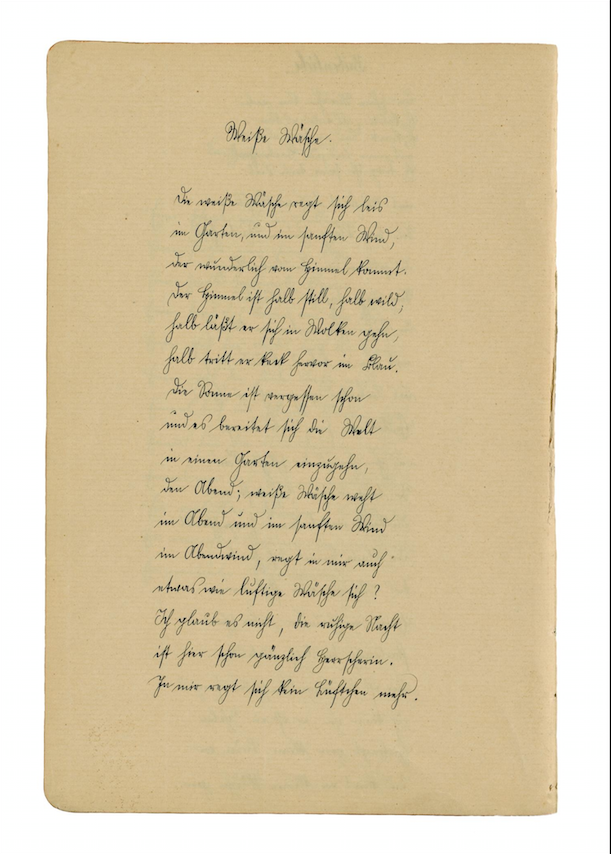 Weiße Wäsche.
Die weiße Wäsche regt sich leis
im Garten, und im sanften Wind,
der wunderlich vom Himmel kommt.
Der Himmel ist halb still, halb wild;
halb läßt er sich in Wolken gehn,
halb tritt er keck hervor im Blau.
Die Sonne ist vergessen schon
und es bereitet sich die Welt
in einen Garten einzugehn,
den Abend; weiße Wäsche weht
im Abend und im sanften Wind
im Abendwind, regt in mir auch
etwas wie luftige Wäsche sich?
Ich glaub es nicht, die ruhige Nacht
ist hier schon gänzlich Herrscherin.
In mir regt sich kein Lüftchen mehr.